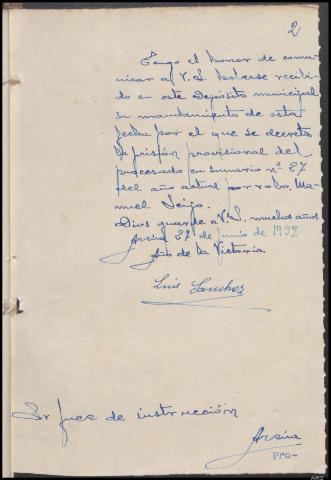 2
Tengo el honor de comu-
nicar a V.S. haberse recibi-
do en este Depósito municipal
su mandamiento de esta
fecha por el que se decreta
la prisión provisional del
procesado en sumario nº 27
del año actual por robo, Ma-
nuel Seijo.
Dios guarde a V.S. muchos años
Arzúa 27 de Junio de 1939
Año de la Victoria.
Luis Sanchez
Sr Juez de instrucción
Arzúa
PRO-